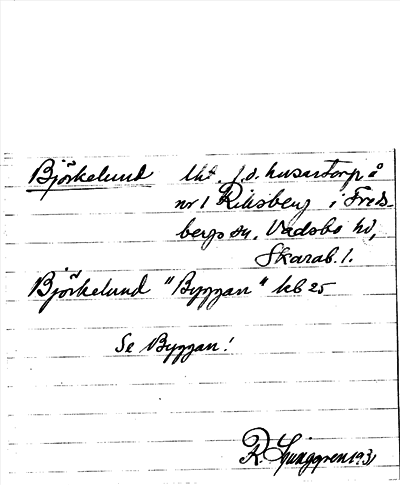 Björkelund lht. f.d. husartorp å
nr 1 Riksberg i Freds-
bergs sn, Vadsbo hd,
Skarab. l.
Björkelund "Byggan" hb 25
Se Byggan!
R. Ljunggren 1931